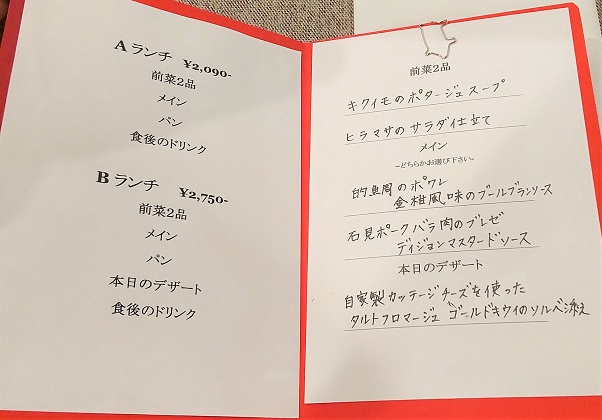 Aランチ ¥2,090-
前菜2品
メイン
パン
食後のドリンク
Bランチ ¥2,750-
前菜2品
メイン
パン
本日のデザート
食後のドリンク
前菜2品
キクイモのポタージュスープ
ヒラマサのサラダ仕立て
メイン
-どちらかお選び下さい-
的鯛のポワレ
金柑風味のブールブランソース
石見ポークバラ肉のブレゼ
ディジョンマスタードソース
本日のデザート
自家製カッテージチーズを使った
タルトフロマージュ ゴールドキウイのソルベ添え